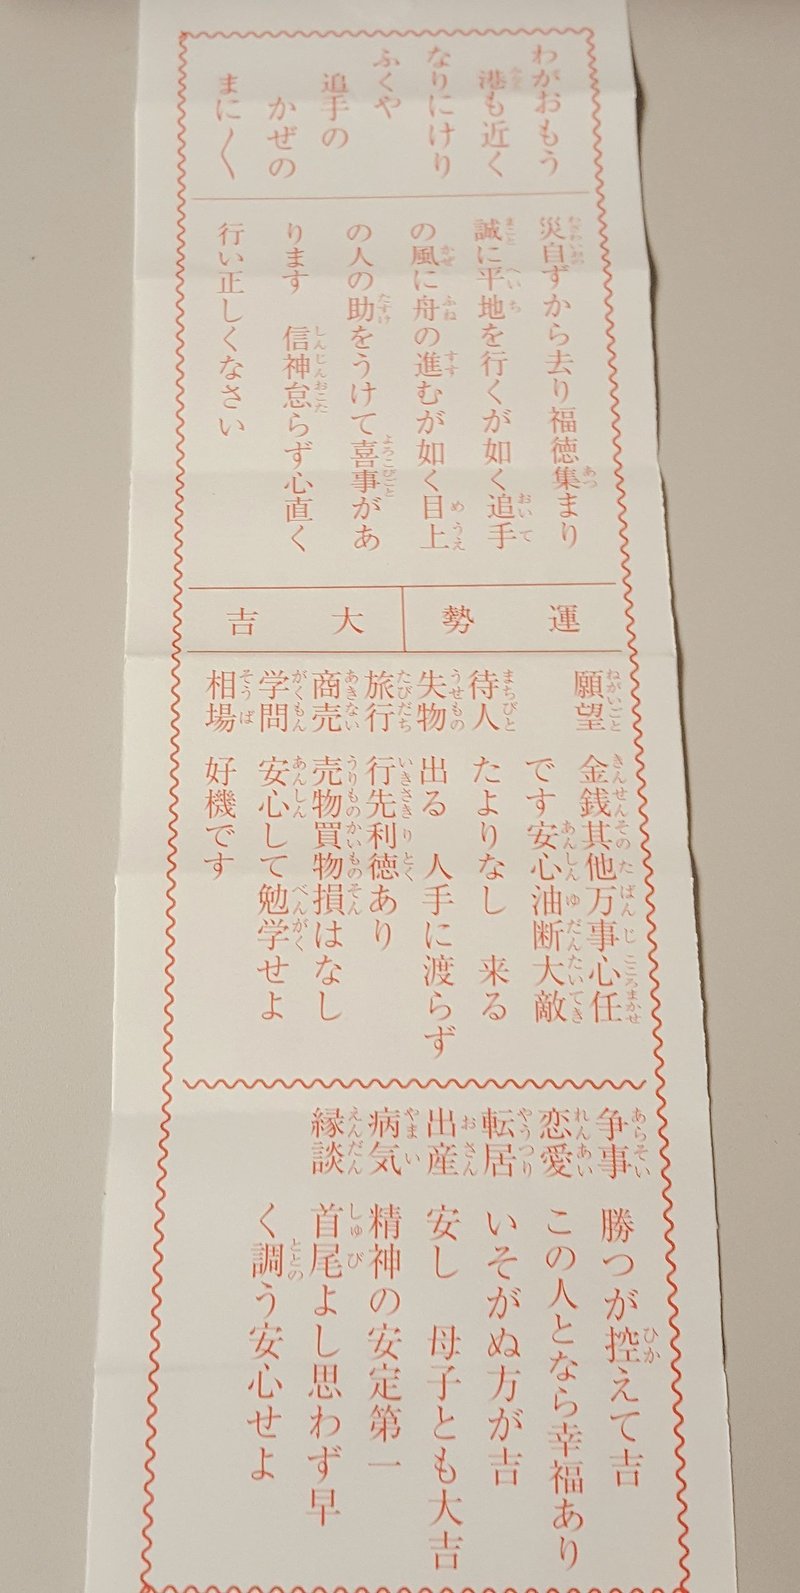 わがおもう
港も近く
なりにけり
ふくや
追手の
かぜの
まに〱
災自ずから去り福徳集まり
誠に平地を行くが如く追手
の風に舟の進むが如く目上
の人の助をうけて喜事があ
ります　信神怠らず心直く
行い正しくなさい
運勢　大吉
願望　金銭其他万事心任
です安心油断大敵
待人　たよりなし　来る
失物　出る　人手に渡らず
旅行　行先利徳あり
商売　売物買物損はなし
学問　安心して勉学せよ
相場　好機です
争事　勝つが控えて吉
恋愛　この人となら幸福あり
転居　いそがぬ方が吉
出産　安し　母子とも大吉
病気　精神の安定第一
縁談　首尾よし思わず早
く調う安心せよ